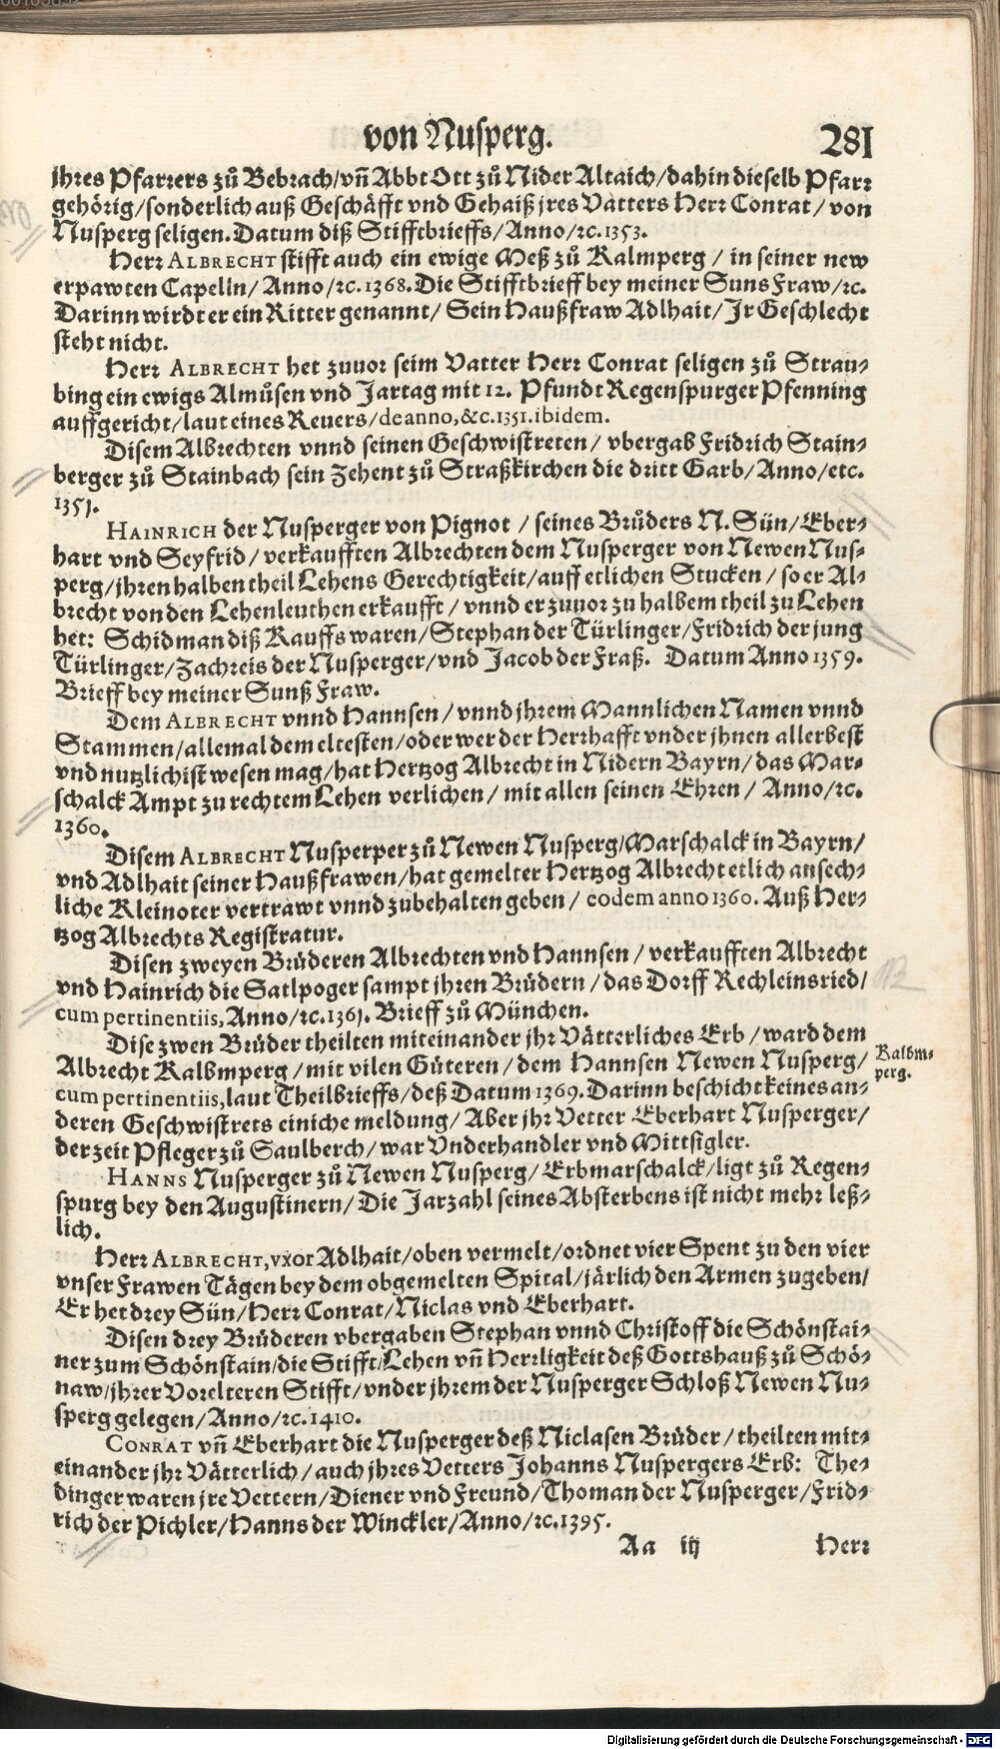 von Nusperg. 281
jhres Pfarrers zů Bebrach/vñ Abbt Ott zů Nider Altaich/dahin dieselb Pfarr
gehörig/sonderlich auß Geschäfft vnd Gehaiß jres Vatters Herr Conrat/von
Nusperg seligen. Datum diß Stifftbrieffs/Anno/ꝛc. 1353.
Herr ALBRECHT stifft auch ein ewige Meß zů Kalmperg/in seiner new
erpawten Capelln/Anno/ꝛc. 1368. Die Stifftbrieff bey meiner Suns Fraw/ꝛc.
Darinn wirdt er ein Ritter genannt/Sein Haußfraw Adlhait/Jr Geschlecht
steht nicht.
Herr ALBRECHT het zuuor seim Vatter Herr Conrat seligen zů Strau-
bing ein ewigs Almůsen vnd Jartag mit 12. Pfundt Regenspurger Pfenning
auffgericht/laut eines Reuers/de anno, &c. 1351. ibidem.
Disem Albrechten vnnd seinen Geschwistreten/vbergab Fridrich Stain-
berger zů Stainbach sein Zehent zů Straßkirchen die dritt Garb/Anno/etc.
1351.
HAINRICH der Nusperger von Pignot/seines Brůders N. Sün/Eber-
hart vnd Seyfrid/verkaufften Albrechten dem Nusperger von Newen Nus-
perg/jhren halben theil Lehens Gerechtigkeit/auff etlichen Stucken/so er Al-
brecht von den Lehenleuthen erkaufft/vnnd er zuuor zu halbem theil zu Lehen
het: Schidman diß Kauffs waren/Stephan der Türlinger/Fridrich der jung
Türlinger/Zachreis der Nusperger/vnd Jacob der Fraß. Datum Anno 1359.
Brieff bey meiner Sunß Fraw.
Dem ALBRECHT vnnd Hannsen/vnnd jhrem Mannlichen Namen vnnd
Stammen/allemal dem eltesten/oder wer der Herrhafft vnder jhnen allerbest
vnd nutzlichist wesen mag/hat Hertzog Albrecht in Nidern Bayrn/das Mar-
schalck Ampt zu rechtem Lehen verlichen/mit allen seinen Ehren/Anno/ꝛc.
1360.
Disem ALBRECHT Nusperper zů Newen Nusperg/Marschalck in Bayrn/
vnd Adlhait seiner Haußfrawen/hat gemelter Hertzog Albrecht etlich ansech-
liche Kleinoter vertrawt vnnd zubehalten geben/eodem anno 1360. Auß Her-
tzog Albrechts Registratur.
Disen zweyen Brüderen Albrechten vnd Hannsen/verkaufften Albrecht
vnd Hainrich die Satlpoger sampt jhren Brüdern/das Dorff Rechleinsried/
cum pertinentiis, Anno/ꝛc. 1361. Brieff zů München.
Dise zwen Brüder theilten miteinander jhr Vätterliches Erb/ward dem
Albrecht Kalbmperg/mit vilen Güteren/dem Hannsen Newen Nusperg/
Kalbm-
perg.
cum pertinentiis, laut Theilbrieffs/deß Datum 1369. Darinn beschicht keines an-
deren Geschwistrets einiche meldung/Aber jhr Vetter Eberhart Nusperger/
der zeit Pfleger zů Saulberch/war Vnderhandler vnd Mittsigler.
HANNS Nusperger zů Newen Nusperg/Erbmarschalck/ligt zů Regen-
spurg bey den Augustinern/Die Jarzahl seines Absterbens ist nicht mehr leß-
lich.
Herr ALBRECHT, vxor Adlhait/oben vermelt/ordnet vier Spent zu den vier
vnser Frawen Tägen bey dem obgemelten Spital/järlich den Armen zugeben/
Er het drey Sün/Herr Conrat/Niclas vnd Eberhart.
Disen drey Brüderen vbergaben Stephan vnnd Christoff die Schönstai-
ner zum Schönstain/die Stifft/Lehen vñ Herrligkeit deß Gottshauß zů Schö-
naw/jhrer Vorelteren Stifft/vnder jhrem der Nusperger Schloß Newen Nu-
sperg gelegen/Anno/ꝛc. 1410.
CONRAT vñ Eberhart die Nusperger deß Niclasen Brüder/theilten mit-
einander jhr Vätterlich/auch jhres Vetters Johanns Nuspergers Erb: The-
dinger waren jre Vettern/Diener vnd Freund/Thoman der Nusperger/Frid-
rich der Pichler/Hanns der Winckler/Anno/ꝛc. 1395.
Aa iij Herr
Digitalisierung gefördert durch die Deutsche Forschungsgemeinschaft - DFG